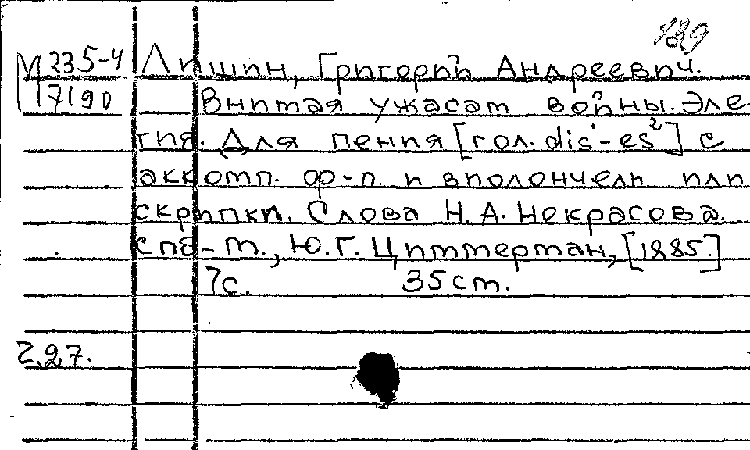 189
М 235-4 Лишин, Григорий Андреевич.
17190 Внимая ужасам войны. Эле
гия. Для пения [гол. dis¹-es²] с
аккомп. ф-п. и виолончели или
скрипки. Слова Н. А. Некрасова.
Спб-т., Ю. Г. Циммерман, [1885.]
7с. 35 cm.
2.27.